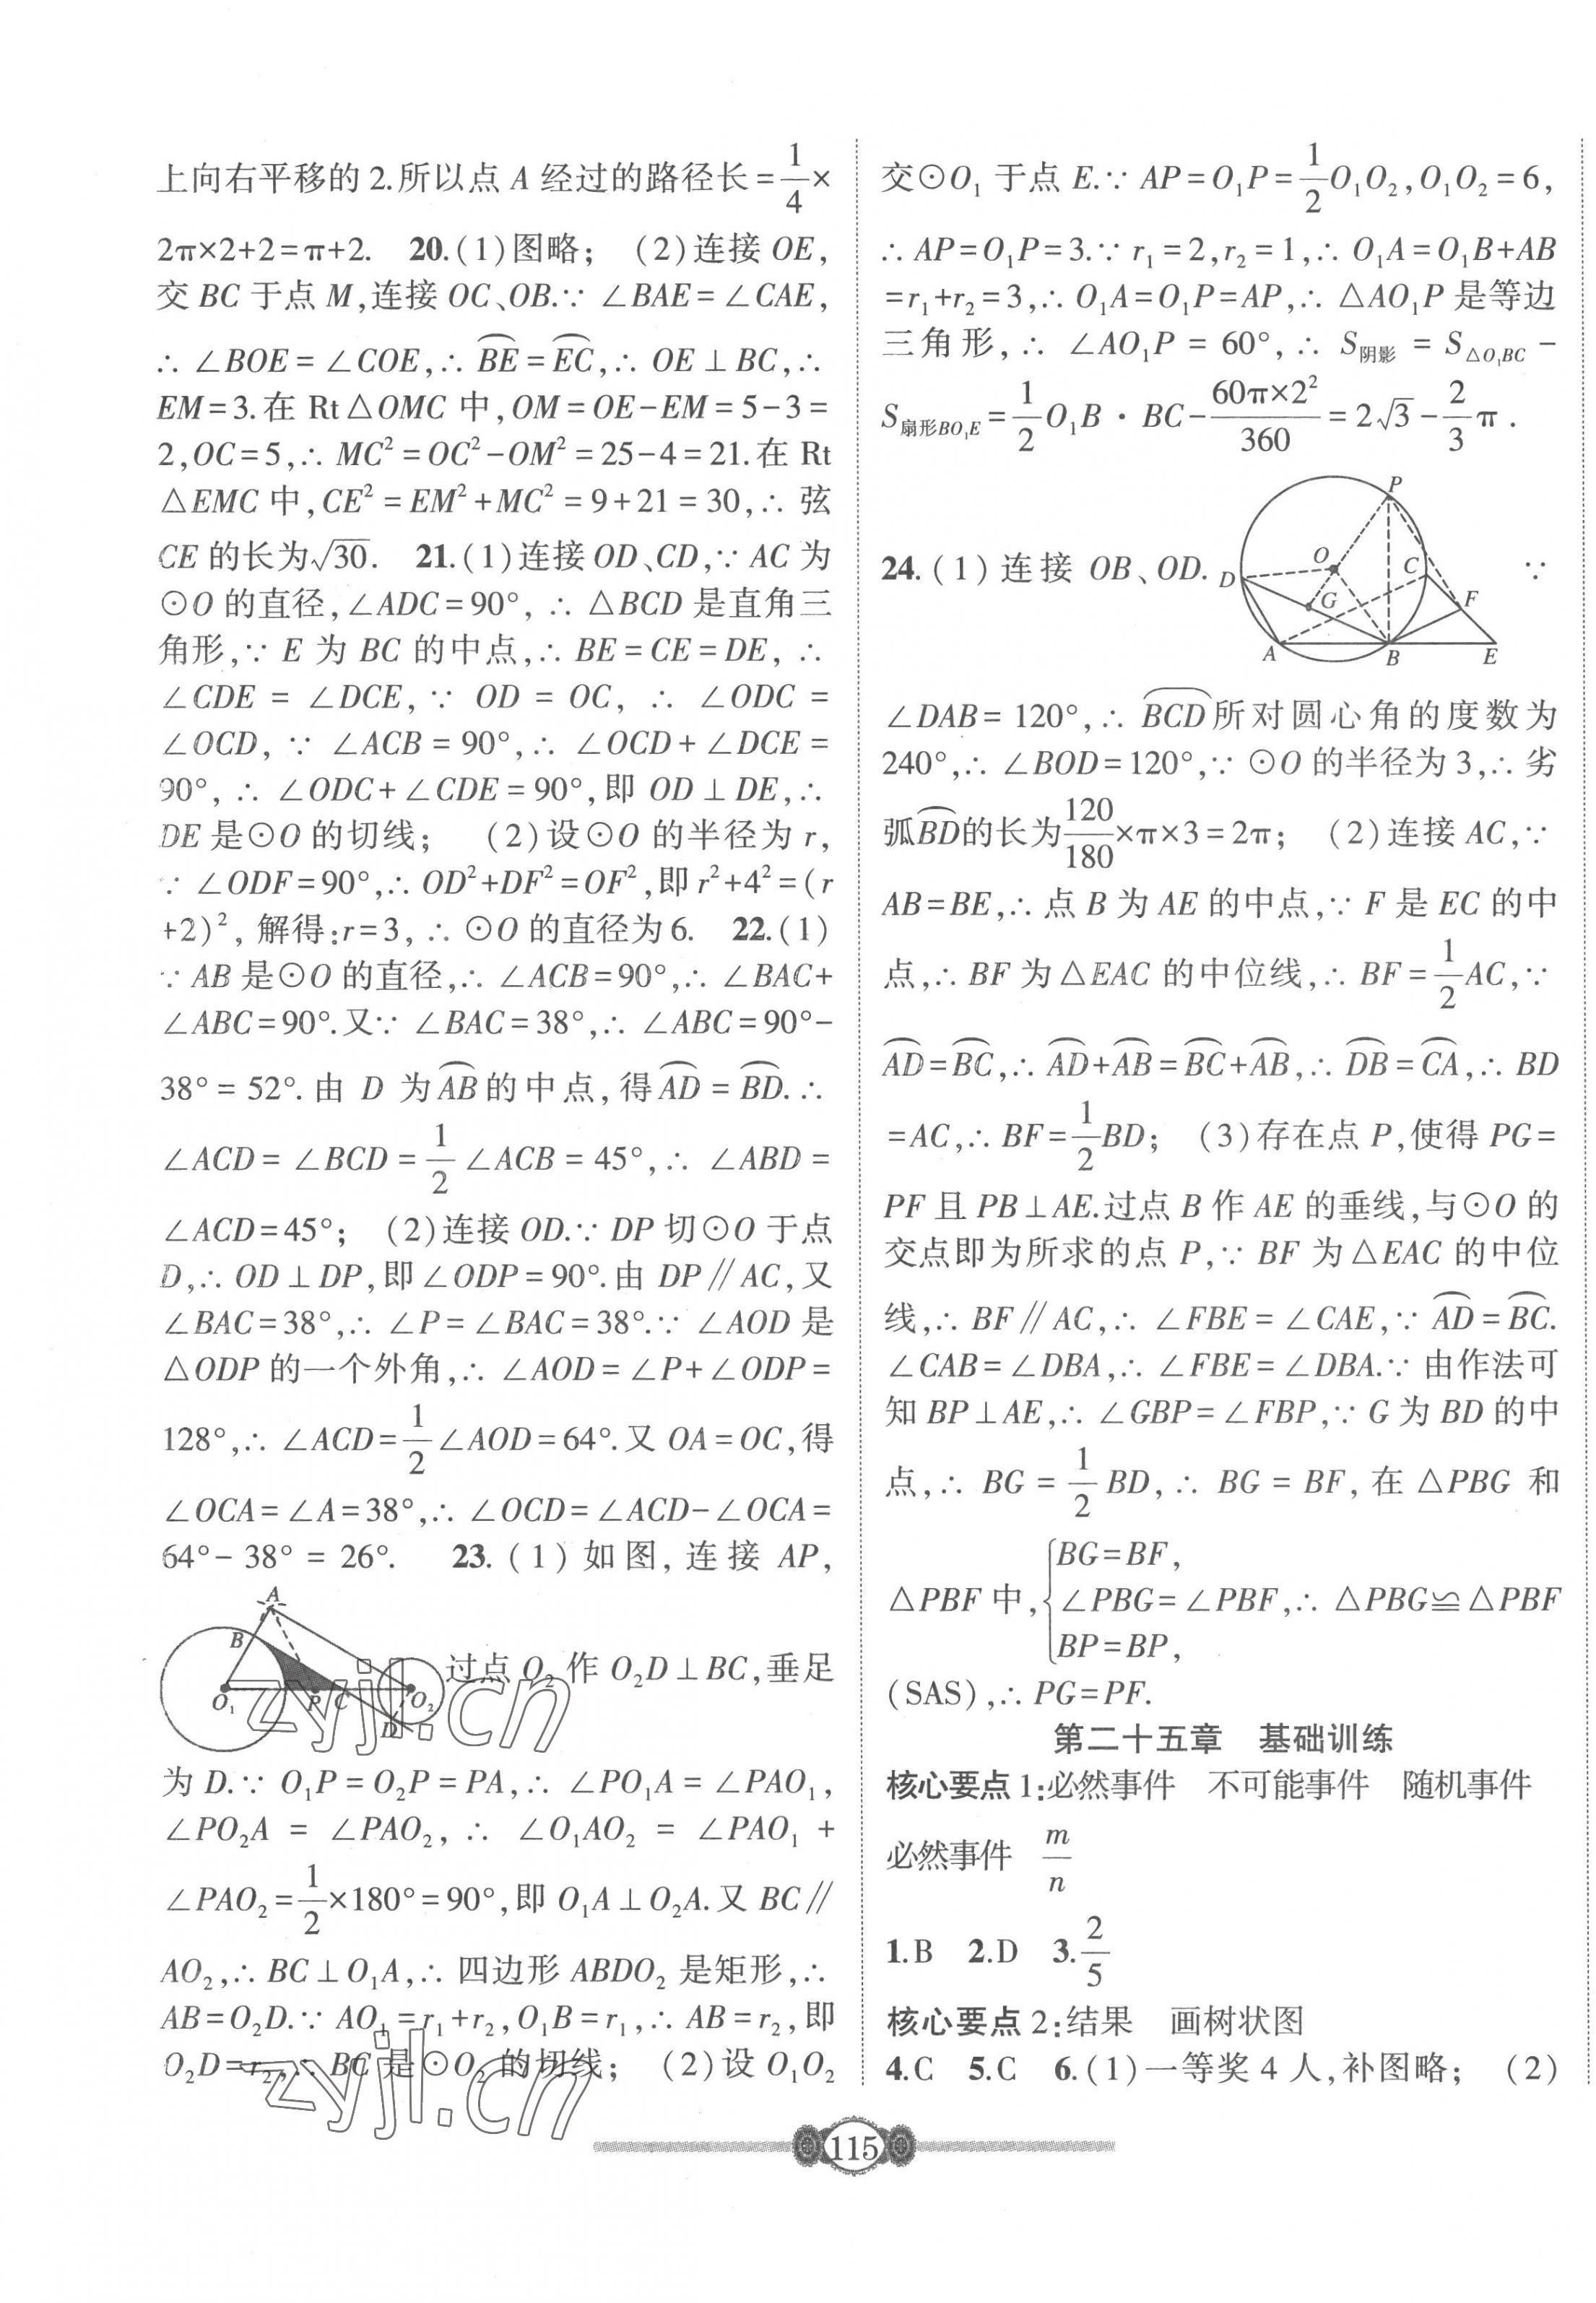 上向右平移的 2.所以点 A 经过的路径长=1/4×
2π×2+2=π+2. 20.(1)图略; (2)连接 OE,
交 BC 于点 M,连接 OC、OB.∵ ∠BAE=∠CAE,
∴ ∠BOE=∠COE,∴ B͡E=E͡C,∴ OE⊥BC,∴
EM=3.在 Rt△OMC 中,OM=OE-EM=5-3=
2,OC=5,∴ MC²=OC²-OM²=25-4=21.在 Rt
△EMC 中,CE²=EM²+MC²=9+21=30,∴ 弦
CE 的长为√30. 21.(1)连接 OD、CD,∵ AC 为
⊙O 的直径,∠ADC=90°, ∴ △BCD 是直角三
角形,∵ E 为 BC 的中点,∴ BE=CE=DE, ∴
∠CDE = ∠DCE, ∵ OD = OC, ∴ ∠ODC =
∠OCD, ∵ ∠ACB=90°,∴ ∠OCD+∠DCE=
90°, ∴ ∠ODC+∠CDE=90°,即 OD⊥DE,∴
DE 是⊙O 的切线; (2)设⊙O 的半径为 r,
∵ ∠ODF=90°,∴ OD²+DF²=OF²,即 r²+4²=(r
+2)², 解得:r=3, ∴ ⊙O 的直径为6. 22.(1)
∵ AB 是⊙O 的直径,∴ ∠ACB=90°,∴ ∠BAC+
∠ABC=90°.又∵ ∠BAC=38°,∴ ∠ABC=90°-
38°=52°.由 D 为A͡B的中点,得A͡D=B͡D.∴
∠ACD=∠BCD=1/2∠ACB=45°,∴ ∠ABD=
∠ACD=45°; (2)连接 OD.∵ DP 切⊙O 于点
D,∴ OD⊥DP,即∠ODP=90°.由 DP∥AC,又
∠BAC=38°,∴ ∠P=∠BAC=38°.∵ ∠AOD 是
△ODP 的一个外角,∴ ∠AOD=∠P+∠ODP=
128°,∴ ∠ACD=1/2∠AOD=64°.又 OA=OC,得
∠OCA=∠A=38°,∴ ∠OCD=∠ACD-∠OCA=
64°-38°=26°. 23.(1)如图,连接 AP,
A
B
O₁ P C O₂
D
过点 O₂ 作 O₂D⊥BC,垂足
zyjl.cn
为 D.∵ O₁P=O₂P=PA,∴ ∠PO₁A=∠PAO₁,
∠PO₂A = ∠PAO₂, ∴ ∠O₁AO₂ = ∠PAO₁ +
∠PAO₂=1/2×180°=90°,即 O₁A⊥O₂A.又 BC∥
AO₂,∴ BC⊥O₁A,∴ 四边形 ABDO₂ 是矩形,∴
AB=O₂D.∵ AO₁=r₁+r₂,O₁B=r₁,∴ AB=r₂,即
O₂D=r₂,∴ BC 是⊙O₂ 的切线; (2)设 O₁O₂
zyjl.cn
交⊙O₁ 于点 E.∵ AP=O₁P=1/2O₁O₂,O₁O₂=6,
∴ AP=O₁P=3.∵ r₁=2,r₂=1,∴ O₁A=O₁B+AB
=r₁+r₂=3,∴ O₁A=O₁P=AP,∴ △AO₁P 是等边
三角形,∴ ∠AO₁P = 60°,∴ S阴影 = S△O₁BC -
S扇形BO₁E=1/2O₁B·BC-60π×2²/360=2√3-2/3π.
24.(1)连接 OB、OD. ∵
P
O
D
C
G
F
A B E
∠DAB=120°,∴ B͡C͡D所对圆心角的度数为
240°,∴ ∠BOD=120°,∵ ⊙O 的半径为 3,∴ 劣
弧B͡D的长为120/180×π×3=2π; (2)连接 AC,∵
AB=BE,∴ 点 B 为 AE 的中点,∵ F 是 EC 的中
点,∴ BF 为△EAC 的中位线,∴ BF=1/2AC,∵
A͡D=B͡C,∴ A͡D+A͡B=B͡C+A͡B,∴ D͡B=C͡A,∴ BD
=AC,∴ BF=1/2BD; (3)存在点 P,使得 PG=
PF 且 PB⊥AE.过点 B 作 AE 的垂线,与⊙O 的
交点即为所求的点 P,∵ BF 为△EAC 的中位
线,∴ BF∥AC,∴ ∠FBE=∠CAE,∵ A͡D=B͡C.
∠CAB=∠DBA,∴ ∠FBE=∠DBA.∵ 由作法可
知 BP⊥AE,∴ ∠GBP=∠FBP,∵ G 为 BD 的中
点,∴ BG = 1/2 BD,∴ BG = BF,在△PBG 和
BG=BF,
△PBF 中,{∠PBG=∠PBF,∴ △PBG≌△PBF
BP=BP,
(SAS),∴ PG=PF.
第二十五章 基础训练
核心要点 1:必然事件 不可能事件 随机事件
必然事件 m/n
1.B 2.D 3.2/5
核心要点 2:结果 画树状图
4.C 5.C 6.(1)一等奖 4 人,补图略; (2)
115